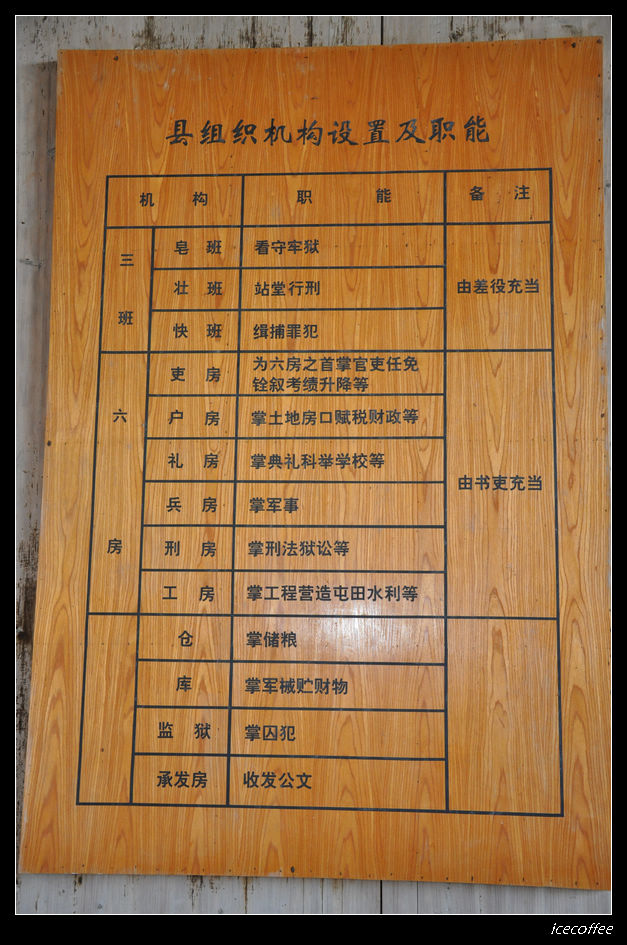 县组织机构设置及职能
机构 职能 备注
三班 皂班 看守牢狱 由差役充当
壮班 站堂行刑
快班 缉捕罪犯
六房 吏房 为六房之首掌官吏任免
铨叙考绩升降等
户房 掌土地房口赋税财政等
礼房 掌典礼科举学校等
由书吏充当
兵房 掌军事
刑房 掌刑法狱讼等
工房 掌工程营造屯田水利等
仓 掌储粮
库 掌军械贮财物
监狱 掌囚犯
承发房 收发公文
icecoffee